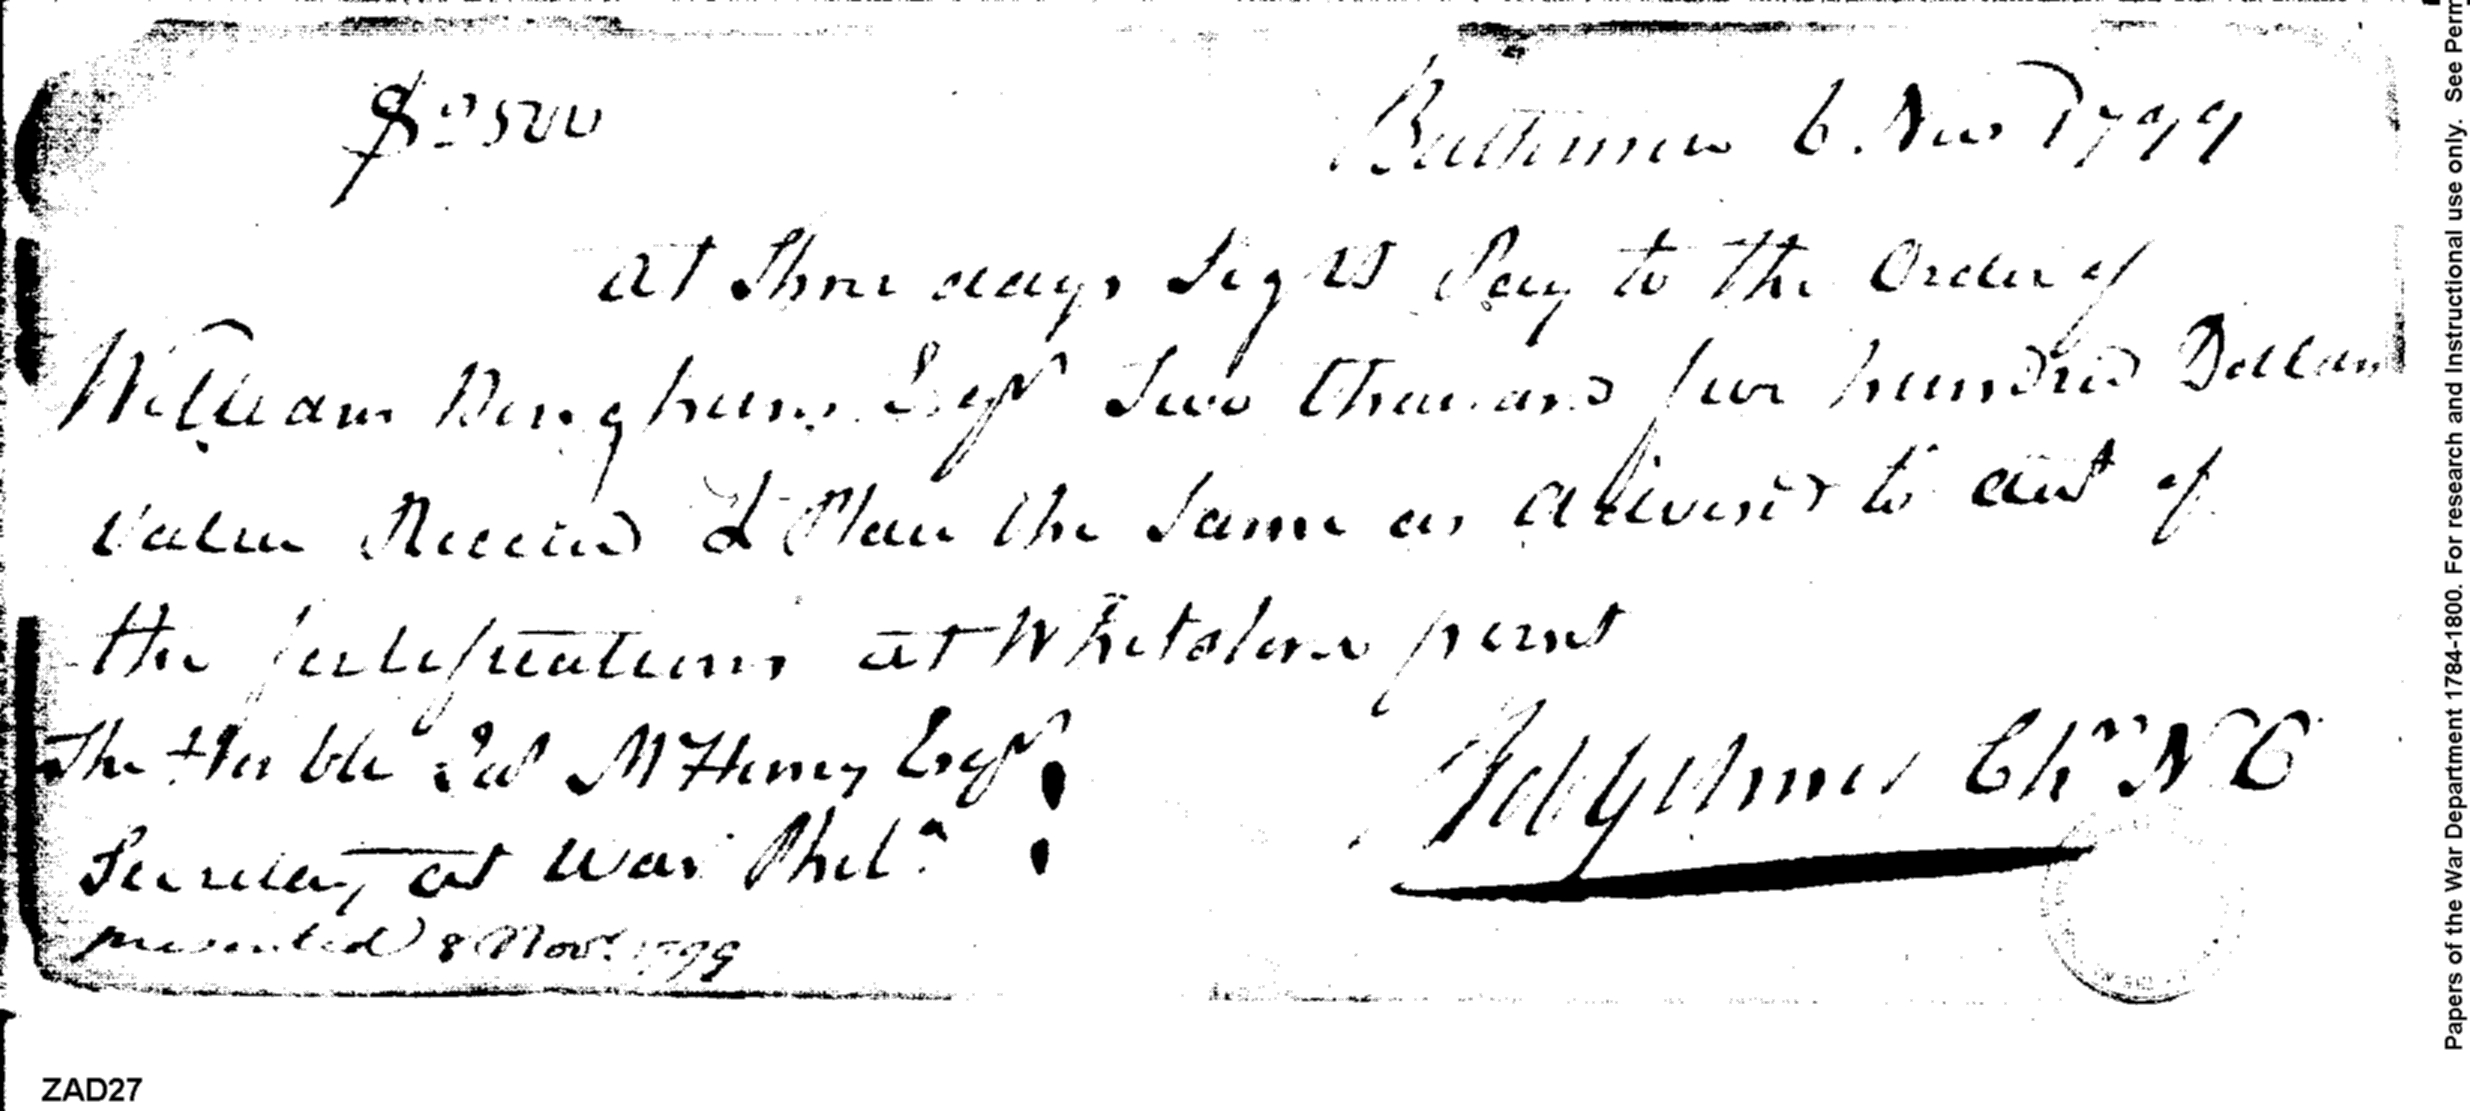 $2500 Baltimore 6. Nov 1799
At Three days Sight Pay to the Order of
William Bingham Esqr Two Thousand five hundred Dollars
Value Received & Place the Same as advised to acct of
the fortifications at Whetstone point
The Honble Jas McHenry Esqr
Secretary at War Phila
Ch N C
presented 8 Novr. 1799
ZAD27
Papers of the War Department 1784-1800. For research and Instructional use only. See Perm